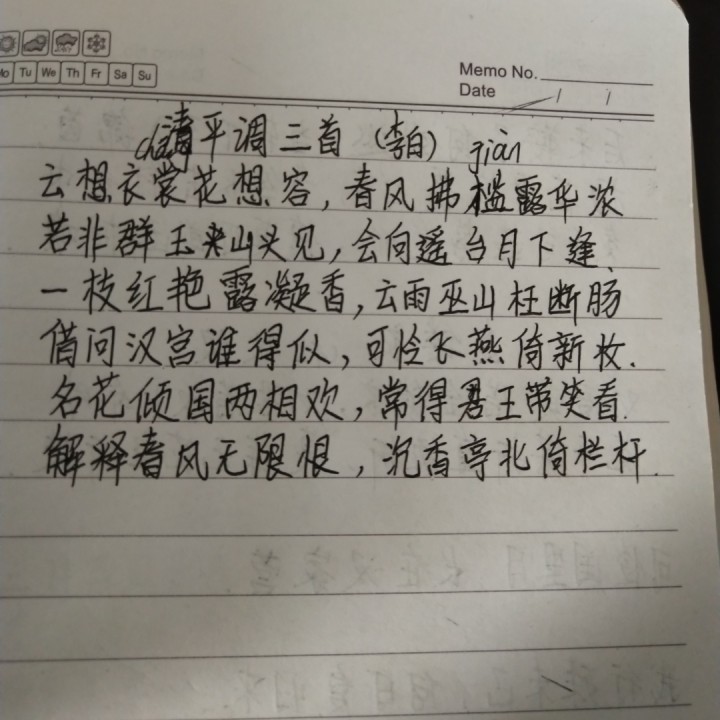 Mo Tu We Th Fr Sa Su
Memo No.
Date / /
清平调三首（李白）
jiàn
云想衣裳花想容，春风拂槛露华浓
若非群玉山头见，会向瑶台月下逢.
一枝红艳露凝香，云雨巫山枉断肠
借问汉宫谁得似，可怜飞燕倚新妆.
名花倾国两相欢，常得君王带笑看.
解释春风无限恨，沉香亭北倚栏杆.